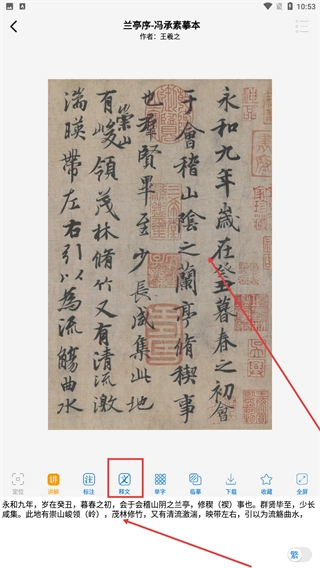 10:53
兰亭序-冯承素摹本
作者：王羲之
永和九年歲在癸丑暮春之初會
于會稽山陰之蘭亭脩稧事
也羣賢畢至少長咸集此地
有崇山峻領茂林脩竹又有清流激
湍暎帶左右引以為流觴曲水
定位
讲解
标注
释文
单字
临摹
下载
收藏
全屏
永和九年，岁在癸丑，暮春之初，会于会稽山阴之兰亭，修稧（禊）事也。群贤毕至，少长
咸集。此地有崇山峻领（岭），茂林修竹，又有清流激湍，映带左右，引以为流觞曲水，